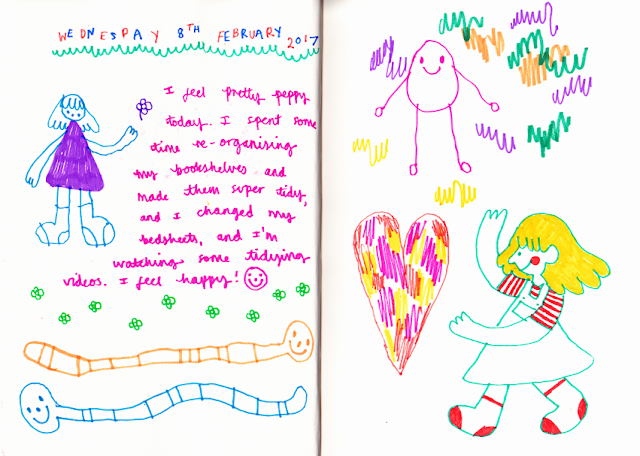 WEDNESDAY 8TH FEBRUARY 2017
I feel pretty peppy
today. I spent some
time re-organising
my bookshelves and
made them super tidy,
and I changed my
bedsheets, and I'm
watching some tidying
videos. I feel happy!